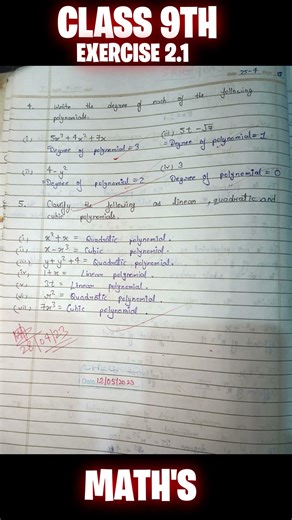 CLASS 9TH
EXERCISE 2.1
4. Write the degree of each of the following
polynomials.
(i) 5x³ + 4x² + 7x (iii) 5t - √7
=Degree of polynomial = 3 = Degree of polynomial = 1
(ii) 4 - y² (iv) 3
=Degree of polynomial = 2 Degree of polynomial = 0
5. Classify the following as linear, quadratic and
cubic polynomials.
(i) x² + x = Quadratic polynomial.
(ii) x - x³ = Cubic polynomial.
(iii) y + y² + 4 = Quadratic polynomial.
(iv) 1 + x = Linear polynomial.
(v) 3t = Linear polynomial.
(vi) r² = Quadratic polynomial.
(vii) 7x³ = Cubic polynomial
20/04/23
MATH'S